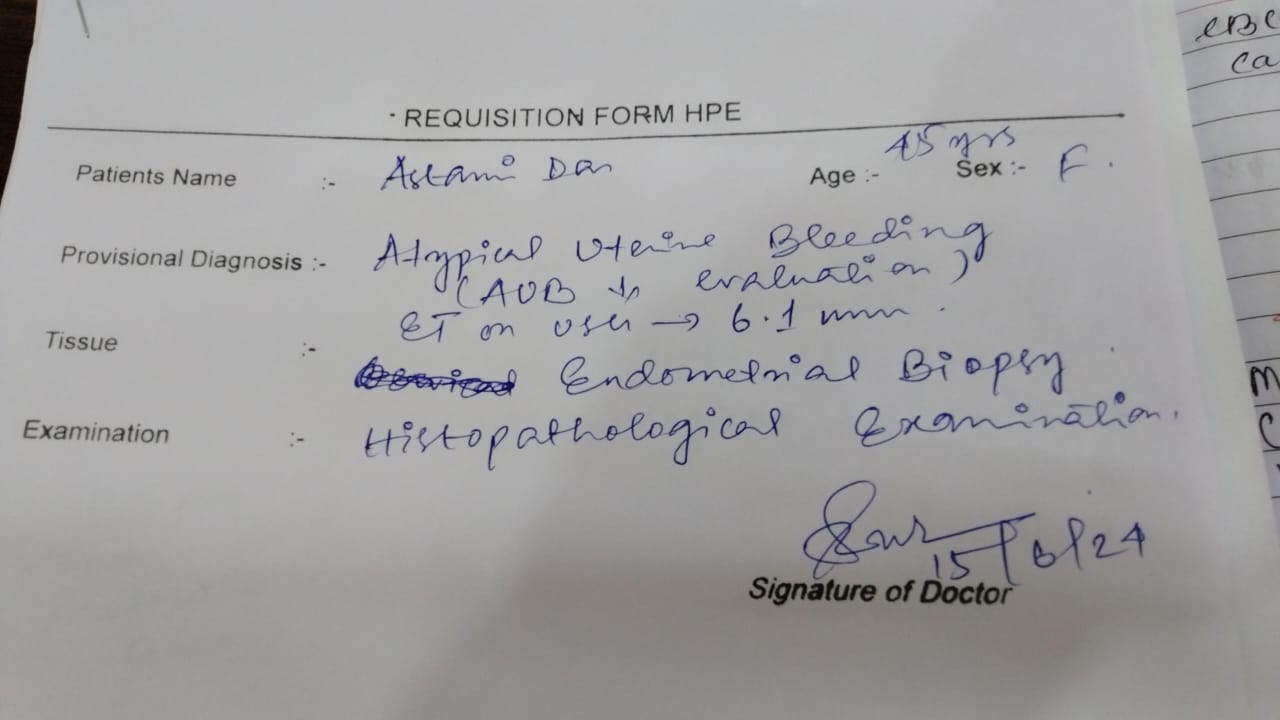 REQUISITION FORM HPE
Patients Name :- Astami Das Age :- 45 yrs Sex :- F.
Provisional Diagnosis :- Atypical Uterine Bleeding
(AUB evaluation)
ET on USG → 6.1 mm.
Tissue :- Endometrial Biopsy
Examination :- Histopathological Examination.
15/6/24
Signature of Doctor
CBC
Ca